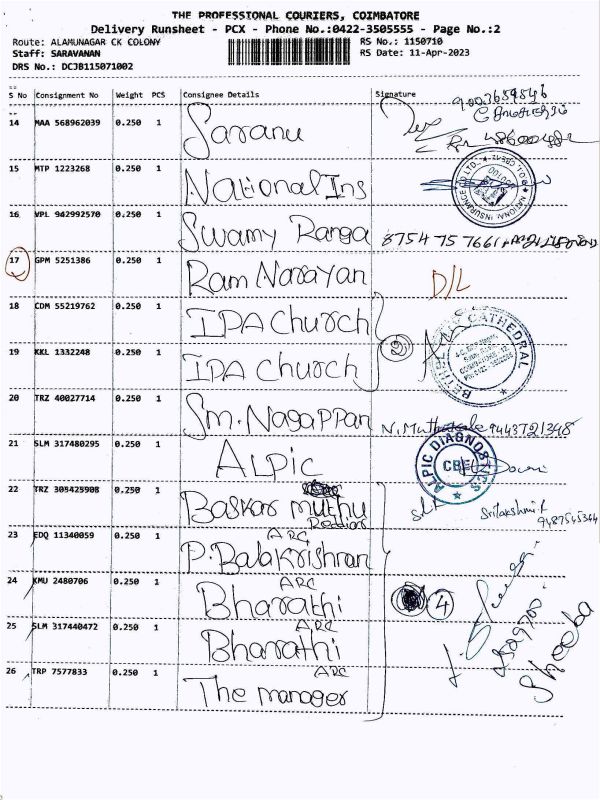 THE PROFESSIONAL COURIERS, COIMBATORE
Delivery Runsheet - PCX - Phone No.:0422-3505555 - Page No.:2
Route: ALAMUNAGAR CK COLONY RS No.: 1150710
Staff: SARAVANAN RS Date: 11-Apr-2023
DRS No.: DCJB115071002
S No Consignment No Weight PCS Consignee Details Signature
14 MAA 568962039 0.250 1 Saranu
15 MTP 1223268 0.250 1 National Ins
16 VPL 942992570 0.250 1 Swamy Ranga 8754757661
17 GPM 5251386 0.250 1 Ram Narayan D/L
18 CDM 55219762 0.250 1 IPA Church
CATHEDRAL
19 KKL 1332248 0.250 1 IPA Church 2
20 TRZ 40027714 0.250 1 Sm. Nagappan 9443721348
21 SLM 317480295 0.250 1 ALPIC
ALPIC DIAGNOSTICS
CBE
22 TRZ 305425908 0.250 1 Baskar muthu
Reddiar
Srilakshmi.k
9487545344
23 EDQ 11340059 0.250 1 P. Balakrishnan
ARC
24 KMU 2480706 0.250 1 Bharathi
ARC
4
25 SLM 317440472 0.250 1 Bharathi
ARC
Sheeba
26 TRP 7577833 0.250 1 The manager
ARC